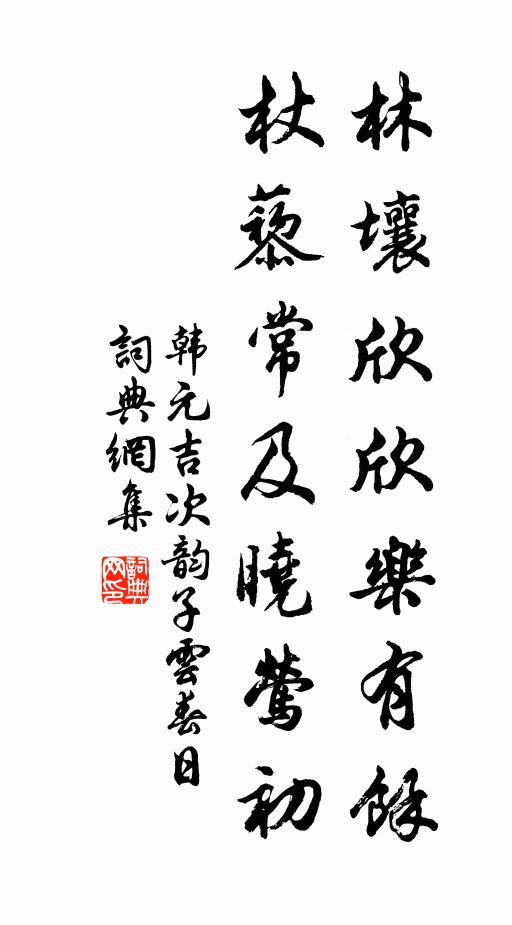 林壤欣欣樂有餘
杖藜常及曉鶯初
韩元吉次韵子雲春日
詞典網集
詞典网印